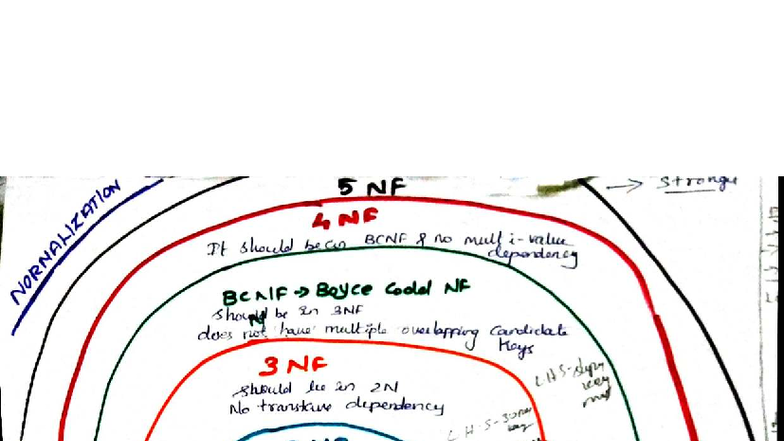 NORNALIZATION
5 NF
→ Stronger
4 NF
It should be in BCNF & no multi-value
dependency
BCNF → Boyce Codd NF
should be in 3NF
does not have multiple overlapping candidate
keys
3 NF
should be in 2N
No transitive dependency
LHS - super
key
LHS - super
key